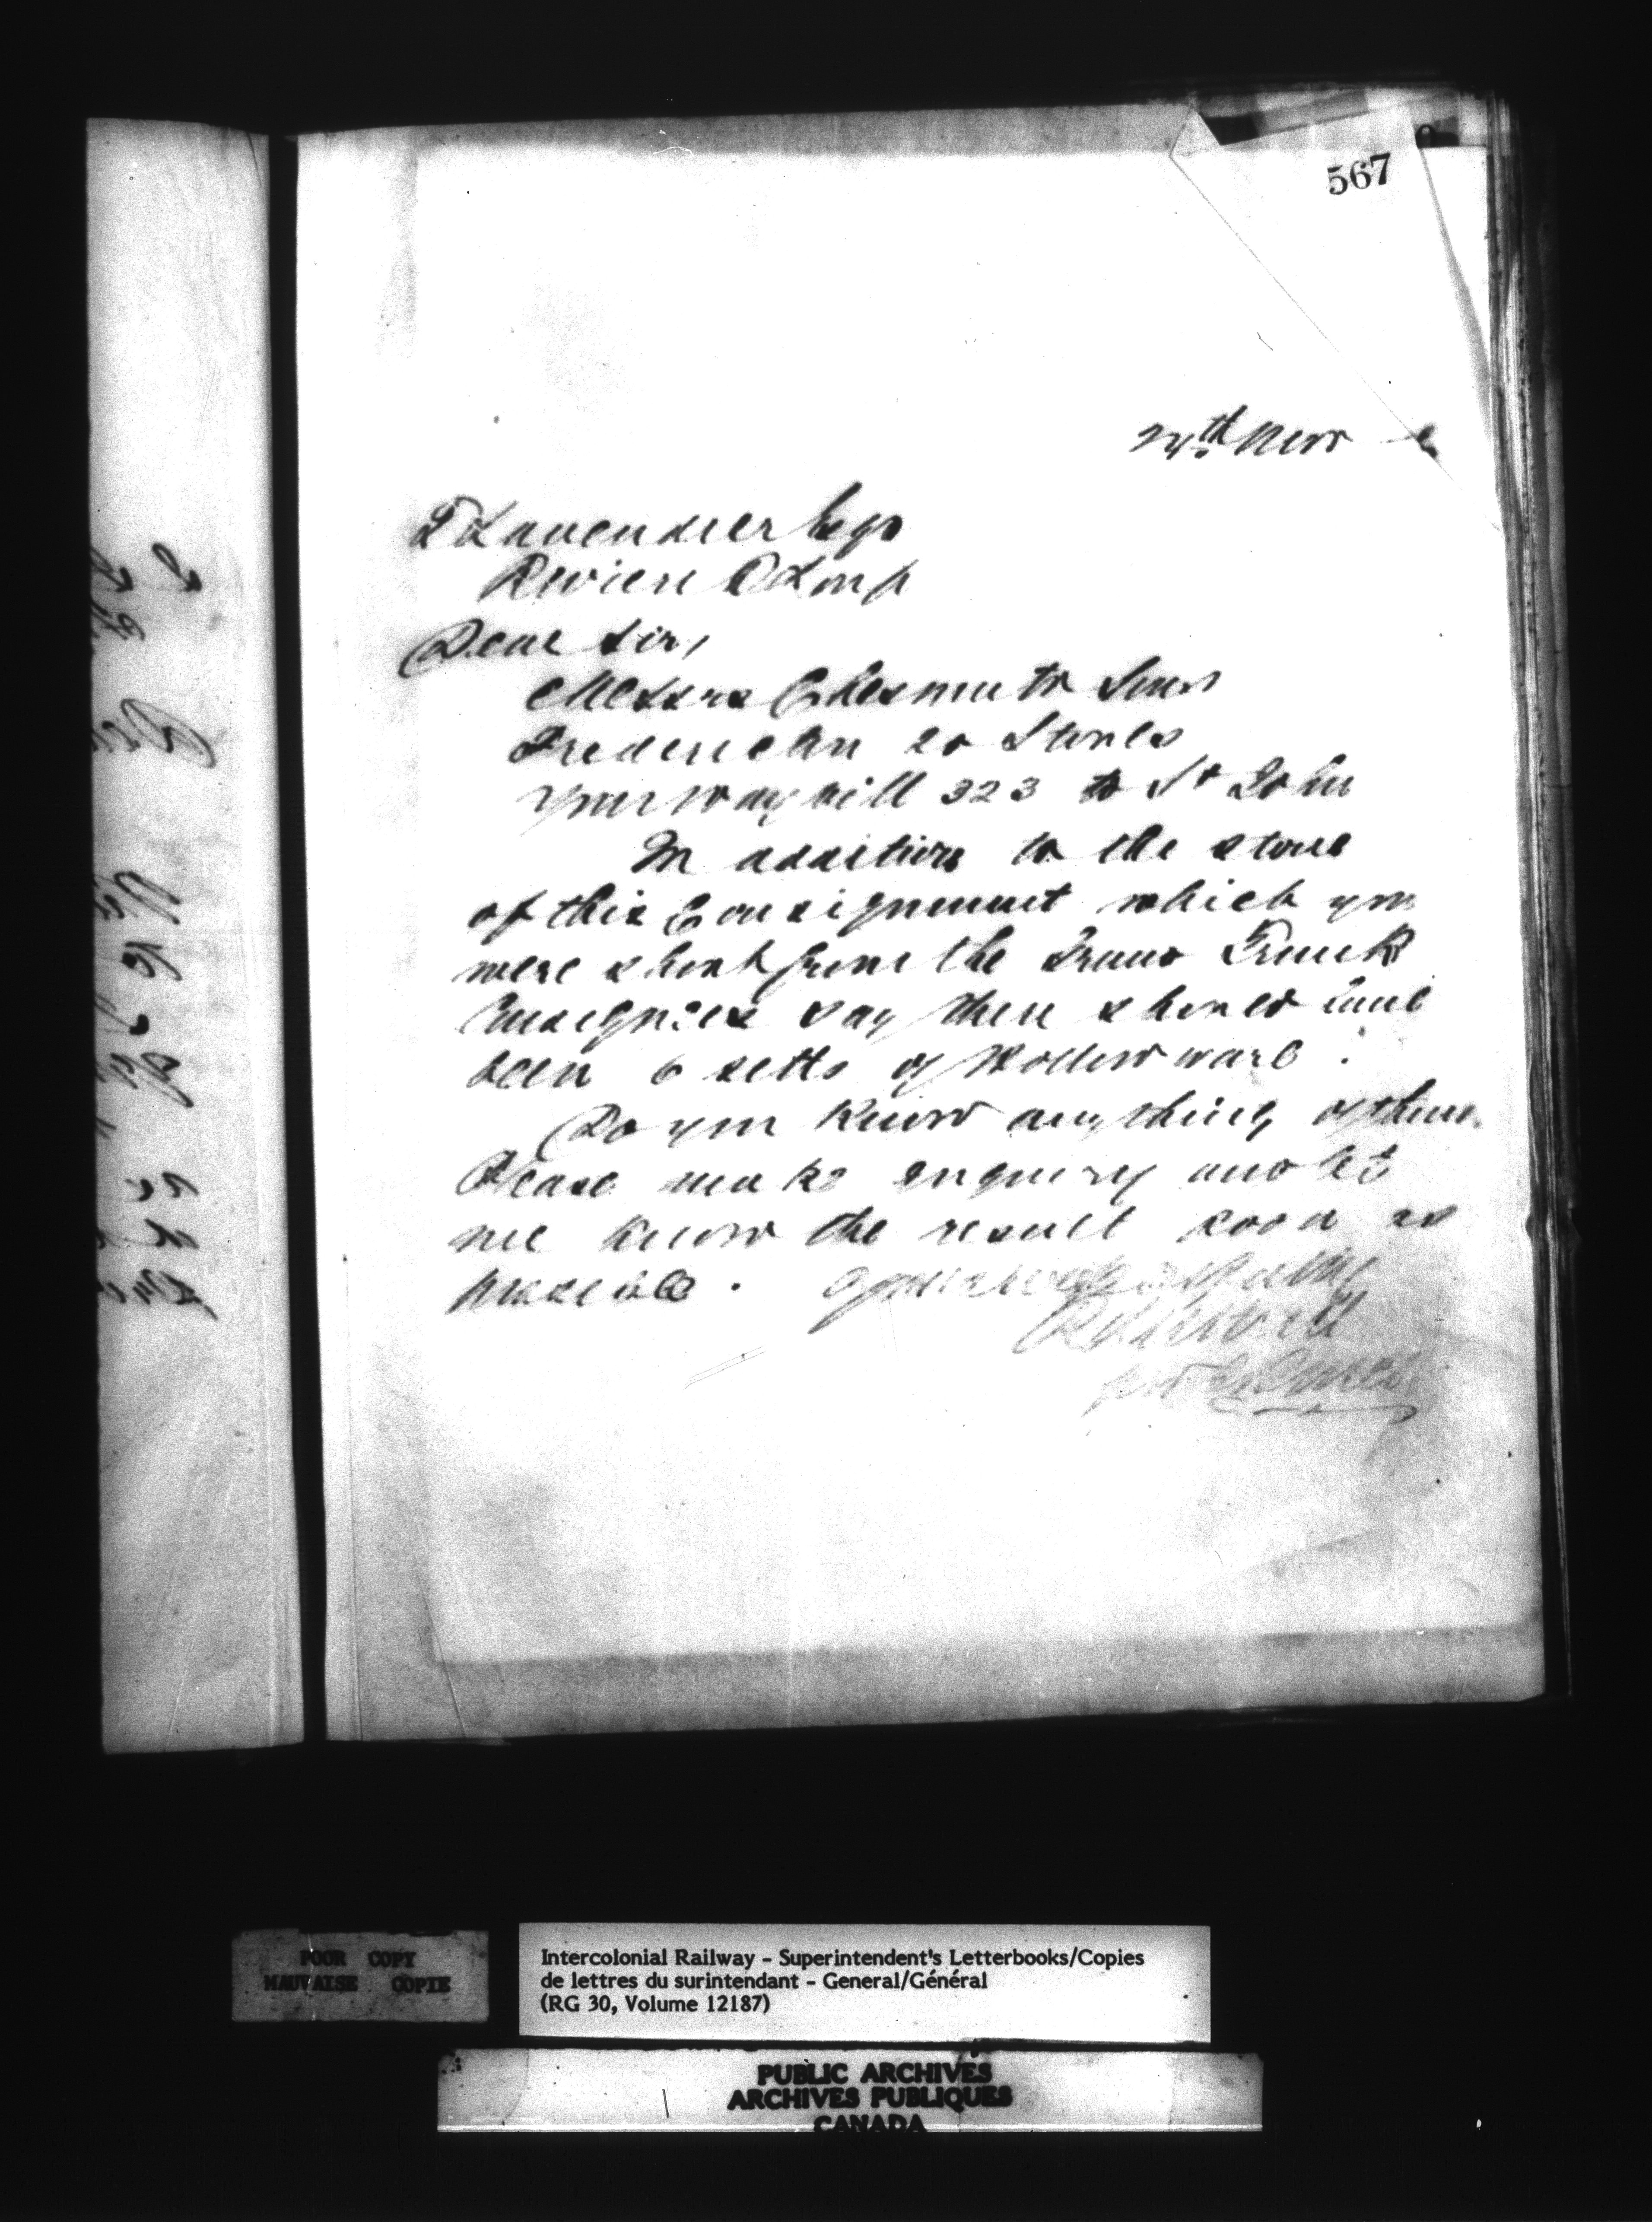 567
24th Nov
T Lavendier Esqr
Riviere D Loup
Dear Sir,
Messrs Chesnut & Sons
Fredericton 20 Stoves
your Way bill 323 to St John
In addition to the stove
of this Consignment which you
were short from the Grand Trunk
Consignees say there should have
been 6 setts of Hollow ware.
Do you know anything of them
Please make enquiry and let
me know the result soon as
possible.
POOR COPY
MAUVAISE COPIE
Intercolonial Railway - Superintendent's Letterbooks/Copies
de lettres du surintendant - General/Général
(RG 30, Volume 12187)
PUBLIC ARCHIVES
ARCHIVES PUBLIQUES
CANADA